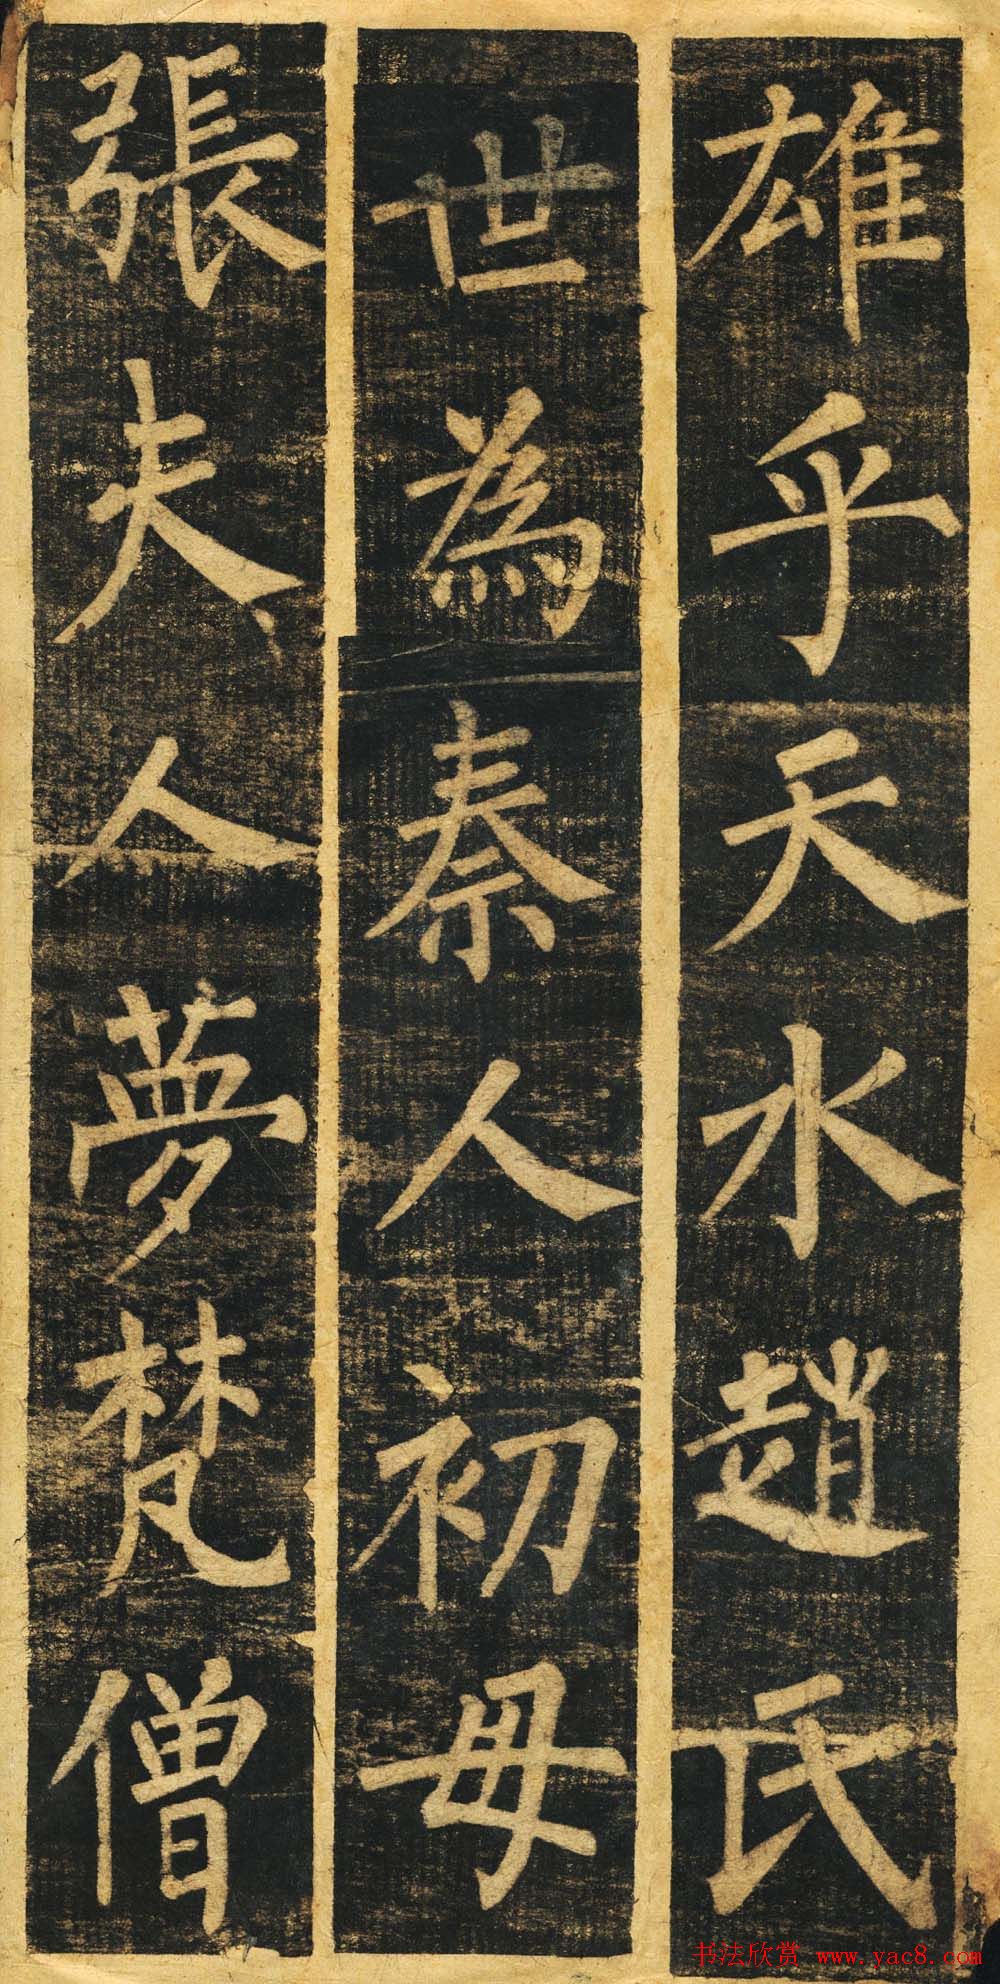 雄乎天水趙氏
世為秦人初母
張夫人夢梵僧
书法欣赏 www.yac8.com